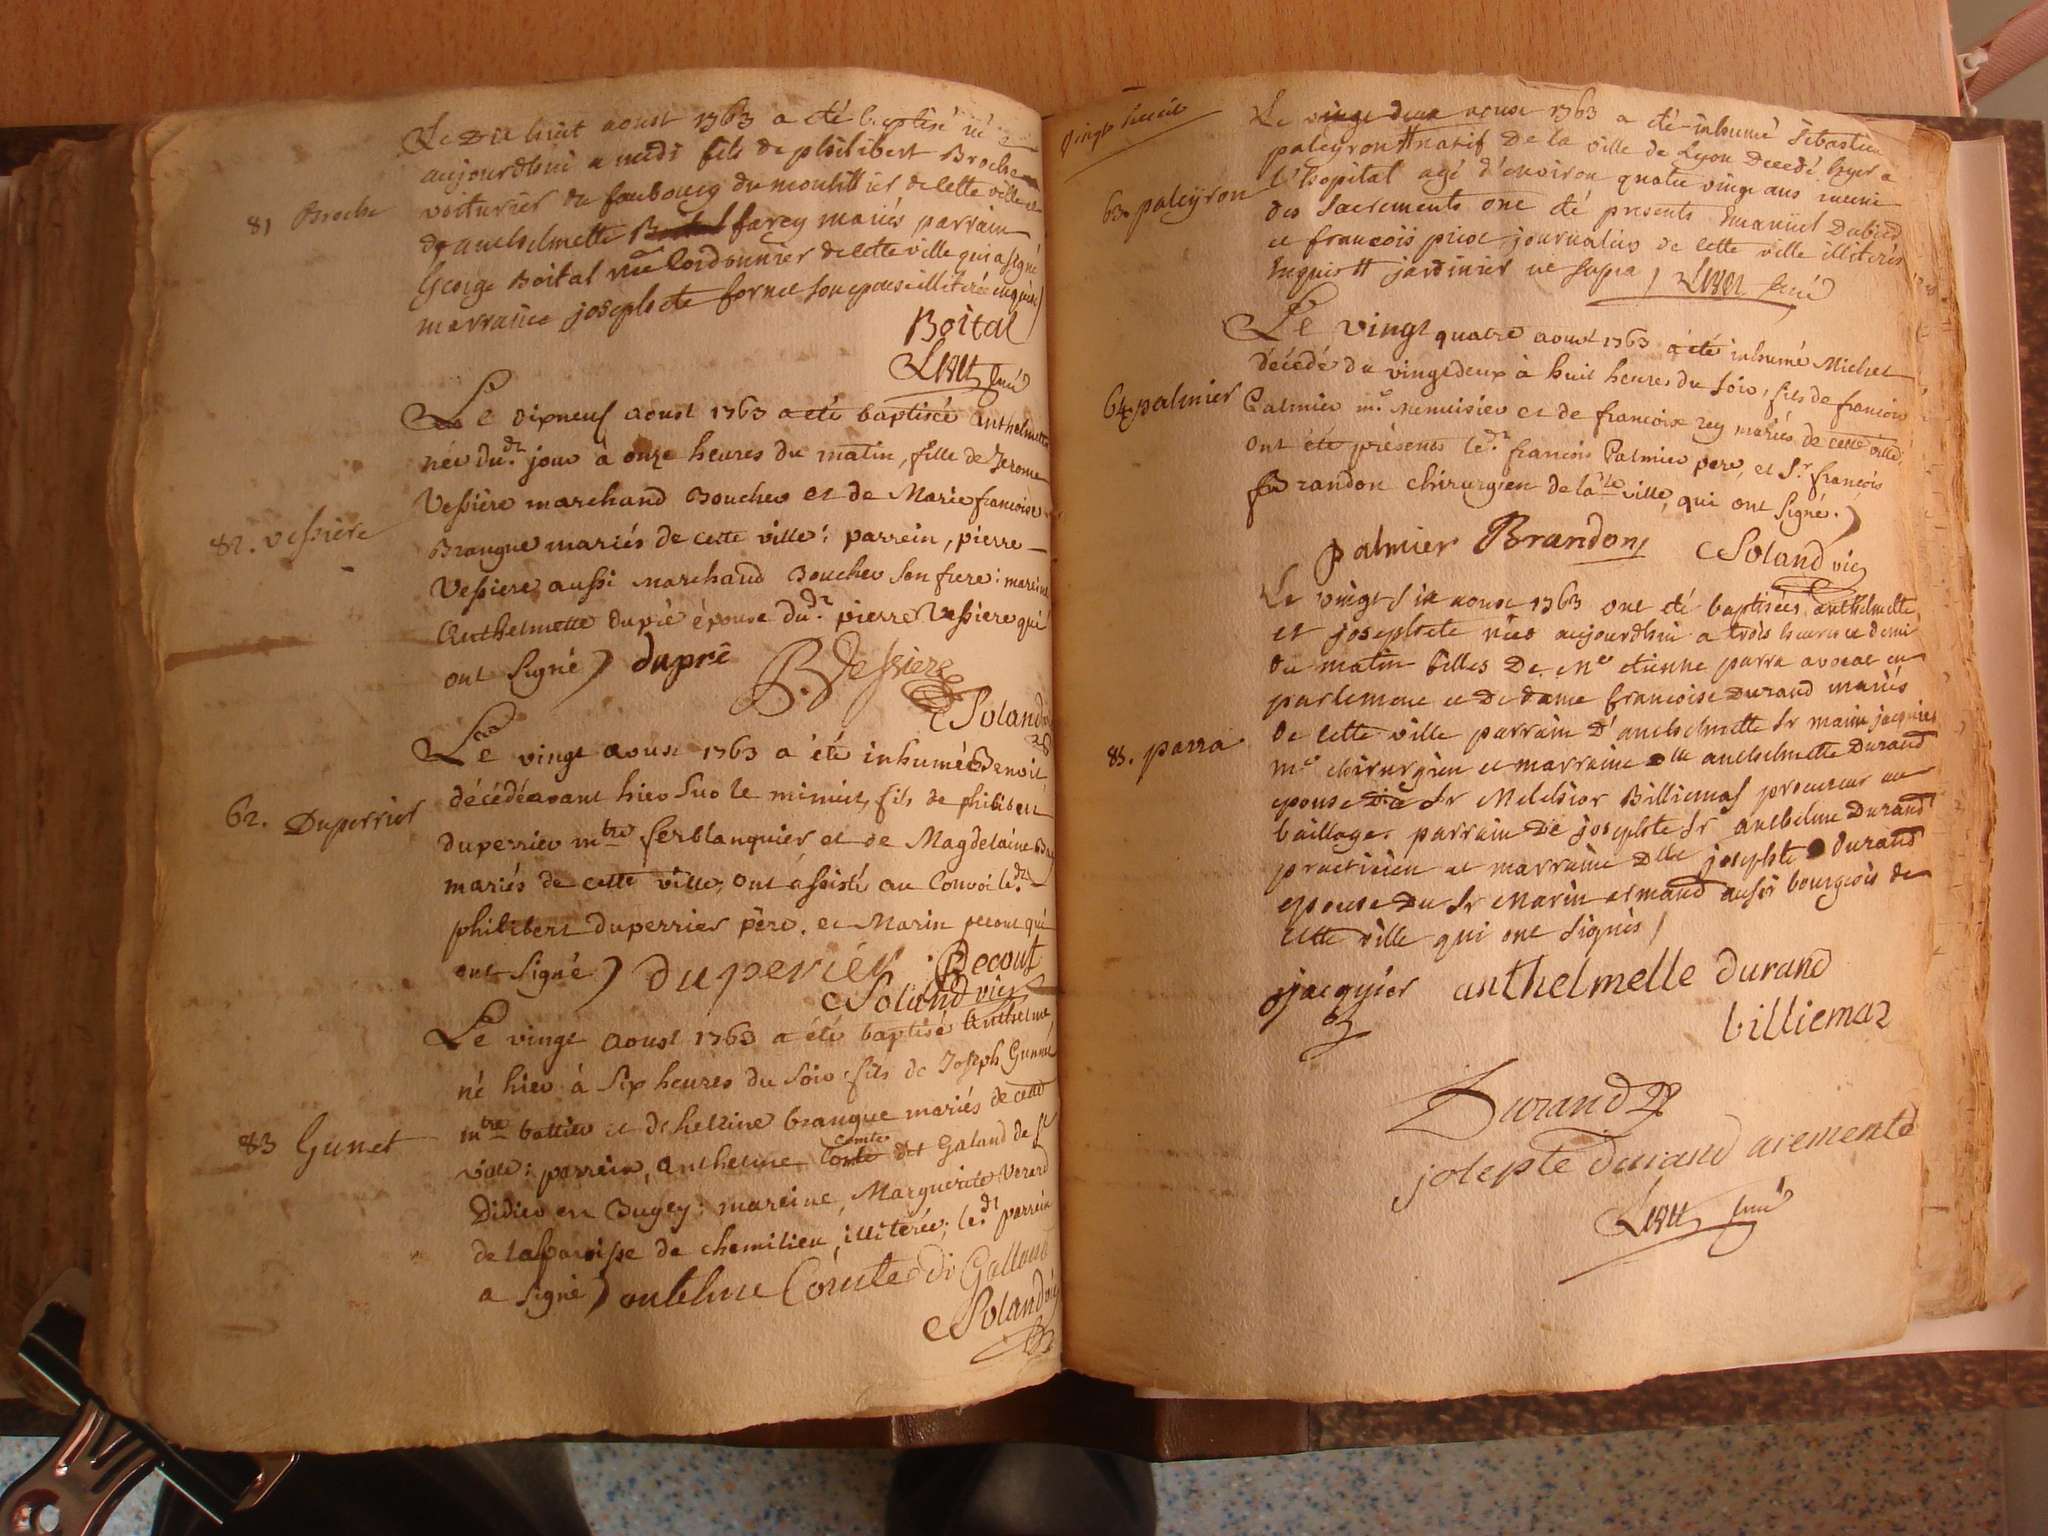 81 Broche
Le Dix huit aoust 1763 a été baptisé né
aujourdhui a midi fils de philibert Broche
voiturier du faubourg du de cette ville et
de anthelmette farcy mariés parrain
George Boital cordonnier de cette ville qui a signé
marraine josephete fornet son epouse illiterée enquise
Boital
curé
82. vessiere
Le dixneuf aoust 1763 a eté baptisée anthelmette
née du dt jour à onze heures du matin, fille de Jerome
Vessiere marchand Boucher et de Marie francoise
Brangue mariés de cette ville: parrein, pierre
Vessiere aussi marchand Boucher son frere: mareine
Anthelmette dupré épouse du dt pierre Vessiere qui
ont signé) dupré B. Vessiere
Soland
62. Duperrier
Le vingt aoust 1763 a été inhumé Benoit
décédé avant hier sur le minuit, fils de philibert
duperrier mtre ferblanquier et de Magdelaine
mariés de cette ville, ont assisté au convoi le dt
philibert duperrier père, et Marin pecout qui
ont signé) duperiér Pecout
Soland vic
83 Gunet
Le vingt aoust 1763 a été baptisé Anthelme
né hier à six heures du soir fils de Joseph Gunnet
mtre battier et d'hellaine brangue mariés de cette
ville: parrein, anthelme Comte dit Galand de St
Didier en Bugey: mareine, Marguerite Verard
de la paroisse de chemilieu, illiterée, le dt parrein
a signé) antelme Comte di Galland
Soland vic
vingt
63. paleyron
Le vingt deux aoust 1763 a été inhumé Sebastien
paleyron # natif de la ville de Lyon decedé hyer a
l'hopital agé d'environ quatre vingt ans muni
des Sacrements ont été presents Emanuel Dubied
et francois picot journaliers de cette ville illiterés
Enquis # jardinier ut supra curé
64. palmier
Le vingt quatre aoust 1763 a eté inhumé Michel
décédé du vingtdeux à huit heures du soir, fils de francois
Palmier me menuisier et de francoise rey mariés de cette ville
ont été présents le dt françois Palmier pere, et Sr. françois
Brandon chirurgien de la dte ville, qui ont signé.)
palmier Brandon Soland vic
85. parra
Le vingt six aoust 1763 ont été baptisées anthelmette
et josephete nées aujourdhui a trois heures et demi
du matin filles de Me etienne parra avocat en
parlement et de dame francoise Durand mariés
de cette ville parrain d'anthelmette Sr marin jacquier
me chirurgien et marraine dlle anthelmette Durand
epouse de Sr Melchior Billiemas procureur au
bailliage. parrain de josephte Sr anthelme Durand
practicien et marraine Dlle josephte Durand
epouse du Sr Marin armand aussi bourgeois de
cette ville qui ont signés)
jacquier anthelmette durand
billiemaz
Durand
josepte durand arementd
curé